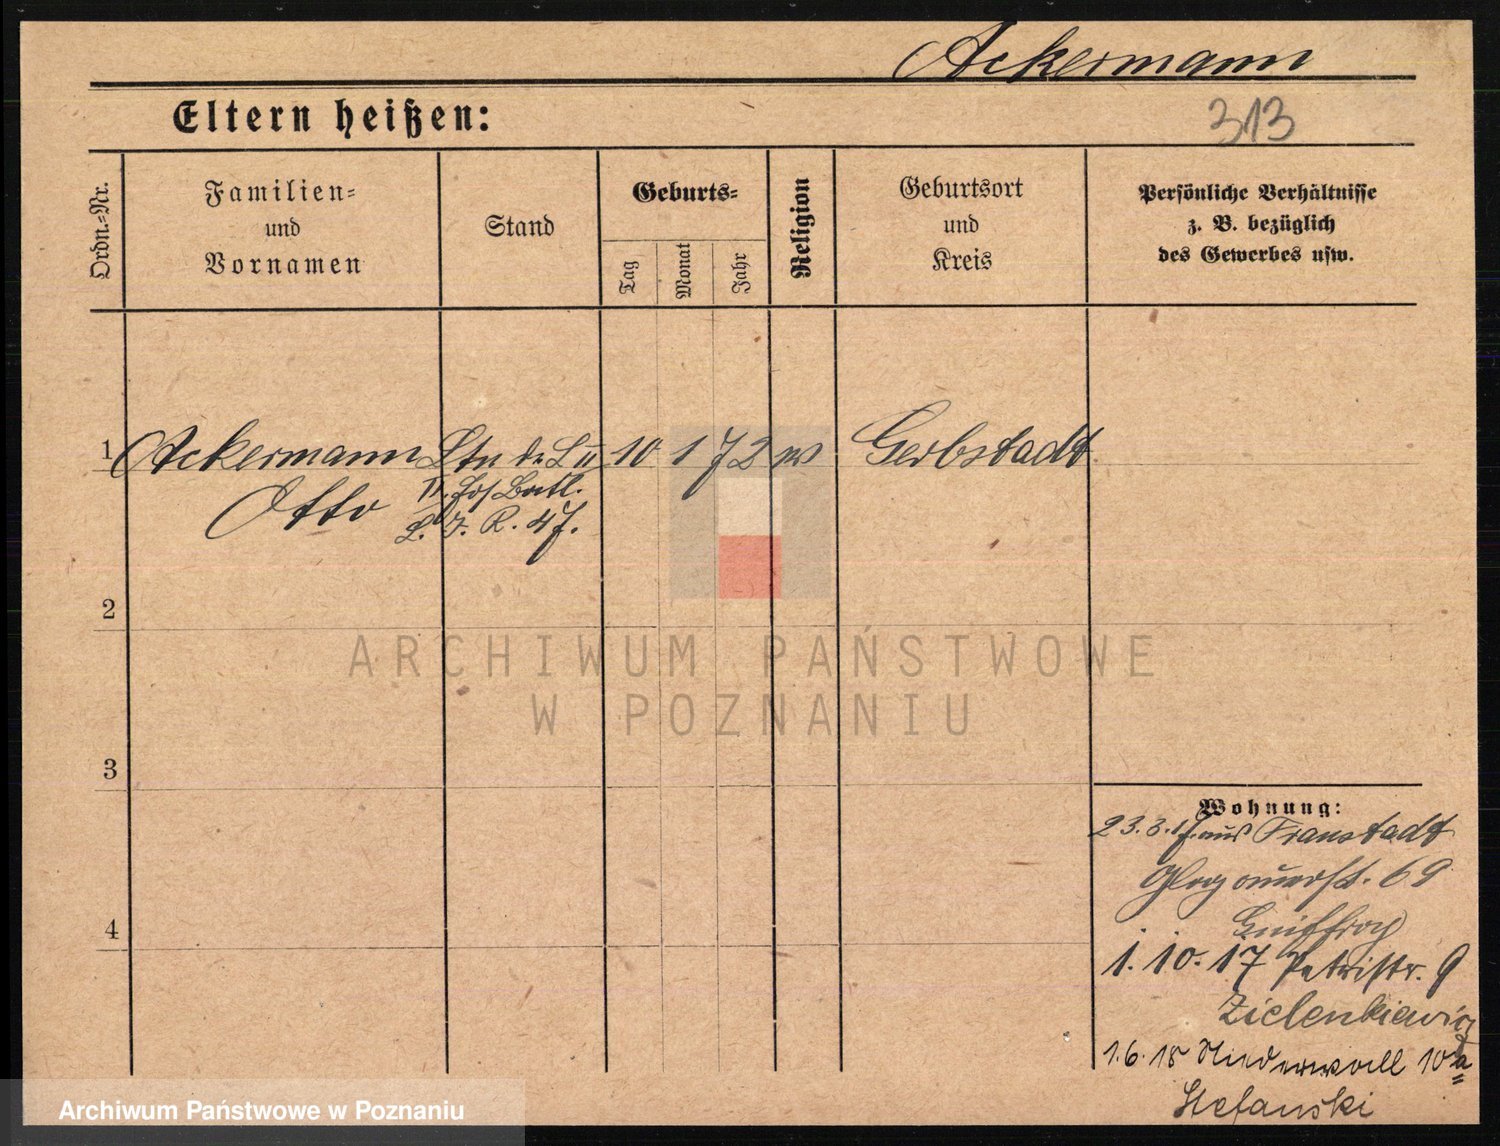 Ackermann
Eltern heißen:
313
Ordn.=Nr.
Familien=
und
Vornamen
Stand
Geburts=
Tag
Monat
Jahr
Religion
Geburtsort
und
Kreis
Persönliche Verhältnisse
z. B. bezüglich
des Gewerbes usw.
1 Ackermann Ltn d. L II 10 1 72 ev Gerbstadt
Otto
II. Ers. Batl.
L. I. R. 47.
2
ARCHIWUM PAŃSTWOWE
W POZNANIU
3
Wohnung:
23.3.17. aus Fraustadt
Glogauerst. 69
4
1.10.17 Petristr. 9
Zielenkiewicz
1.6.18 Niederwall 10a
Stefanski
Archiwum Państwowe w Poznaniu